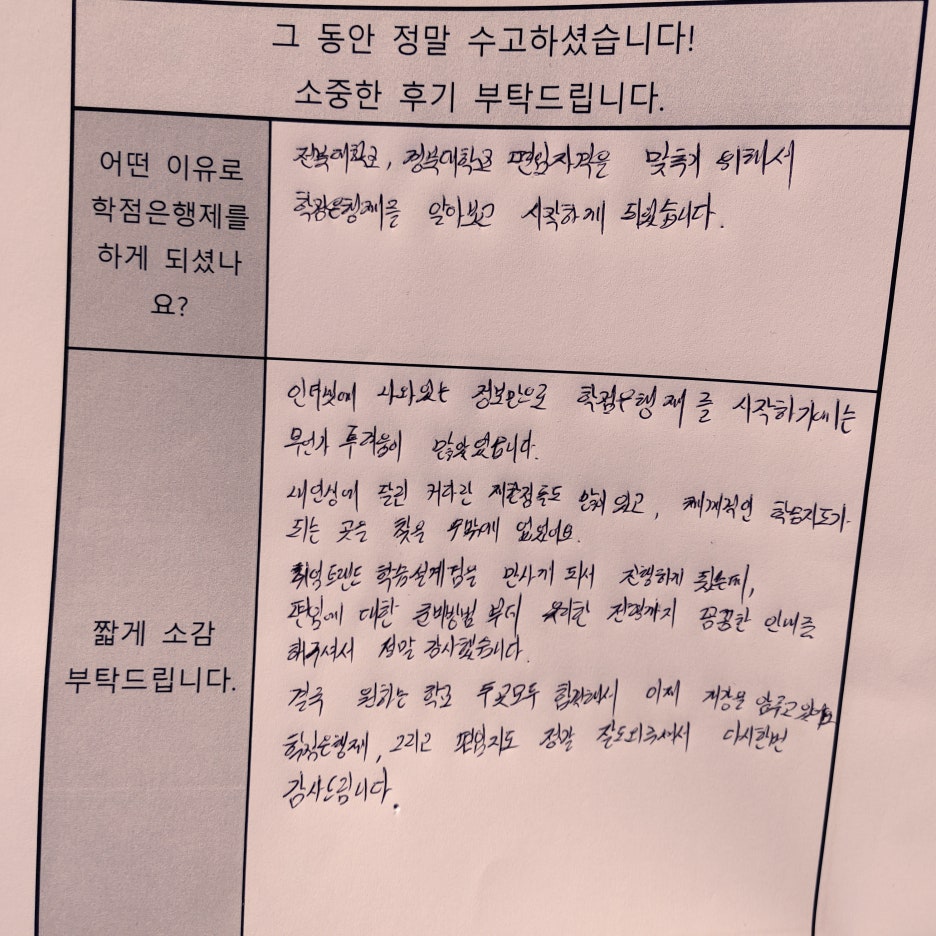 그 동안 정말 수고하셨습니다!
소중한 후기 부탁드립니다.
어떤 이유로
학점은행제를
하게 되셨나
요?
전북대학교, 경북대학교 편입자격을 맞추기 위해서
학점은행제를 알아보고 시작하게 되었습니다.
짧게 소감
부탁드립니다.
인터넷에 나와있는 정보만으로 학점은행제를 시작하기에는
무언가 두려움이 많았었습니다.
되는 곳은 찾을 수밖에 없었어요.
취업트렌드 학습설계팀을 만나게 되서 진행하게 됐는데,
편입에 대한 준비방법 부터 유리한 전형까지 꼼꼼한 안내를
해주셔서 정말 감사했습니다.
결국 원하는 학교 두곳모두 합격해서 이제 개강을 앞두고 있네요
학점은행제, 그리고 편입지도 정말 잘도와주셔서 다시한번
감사드립니다.